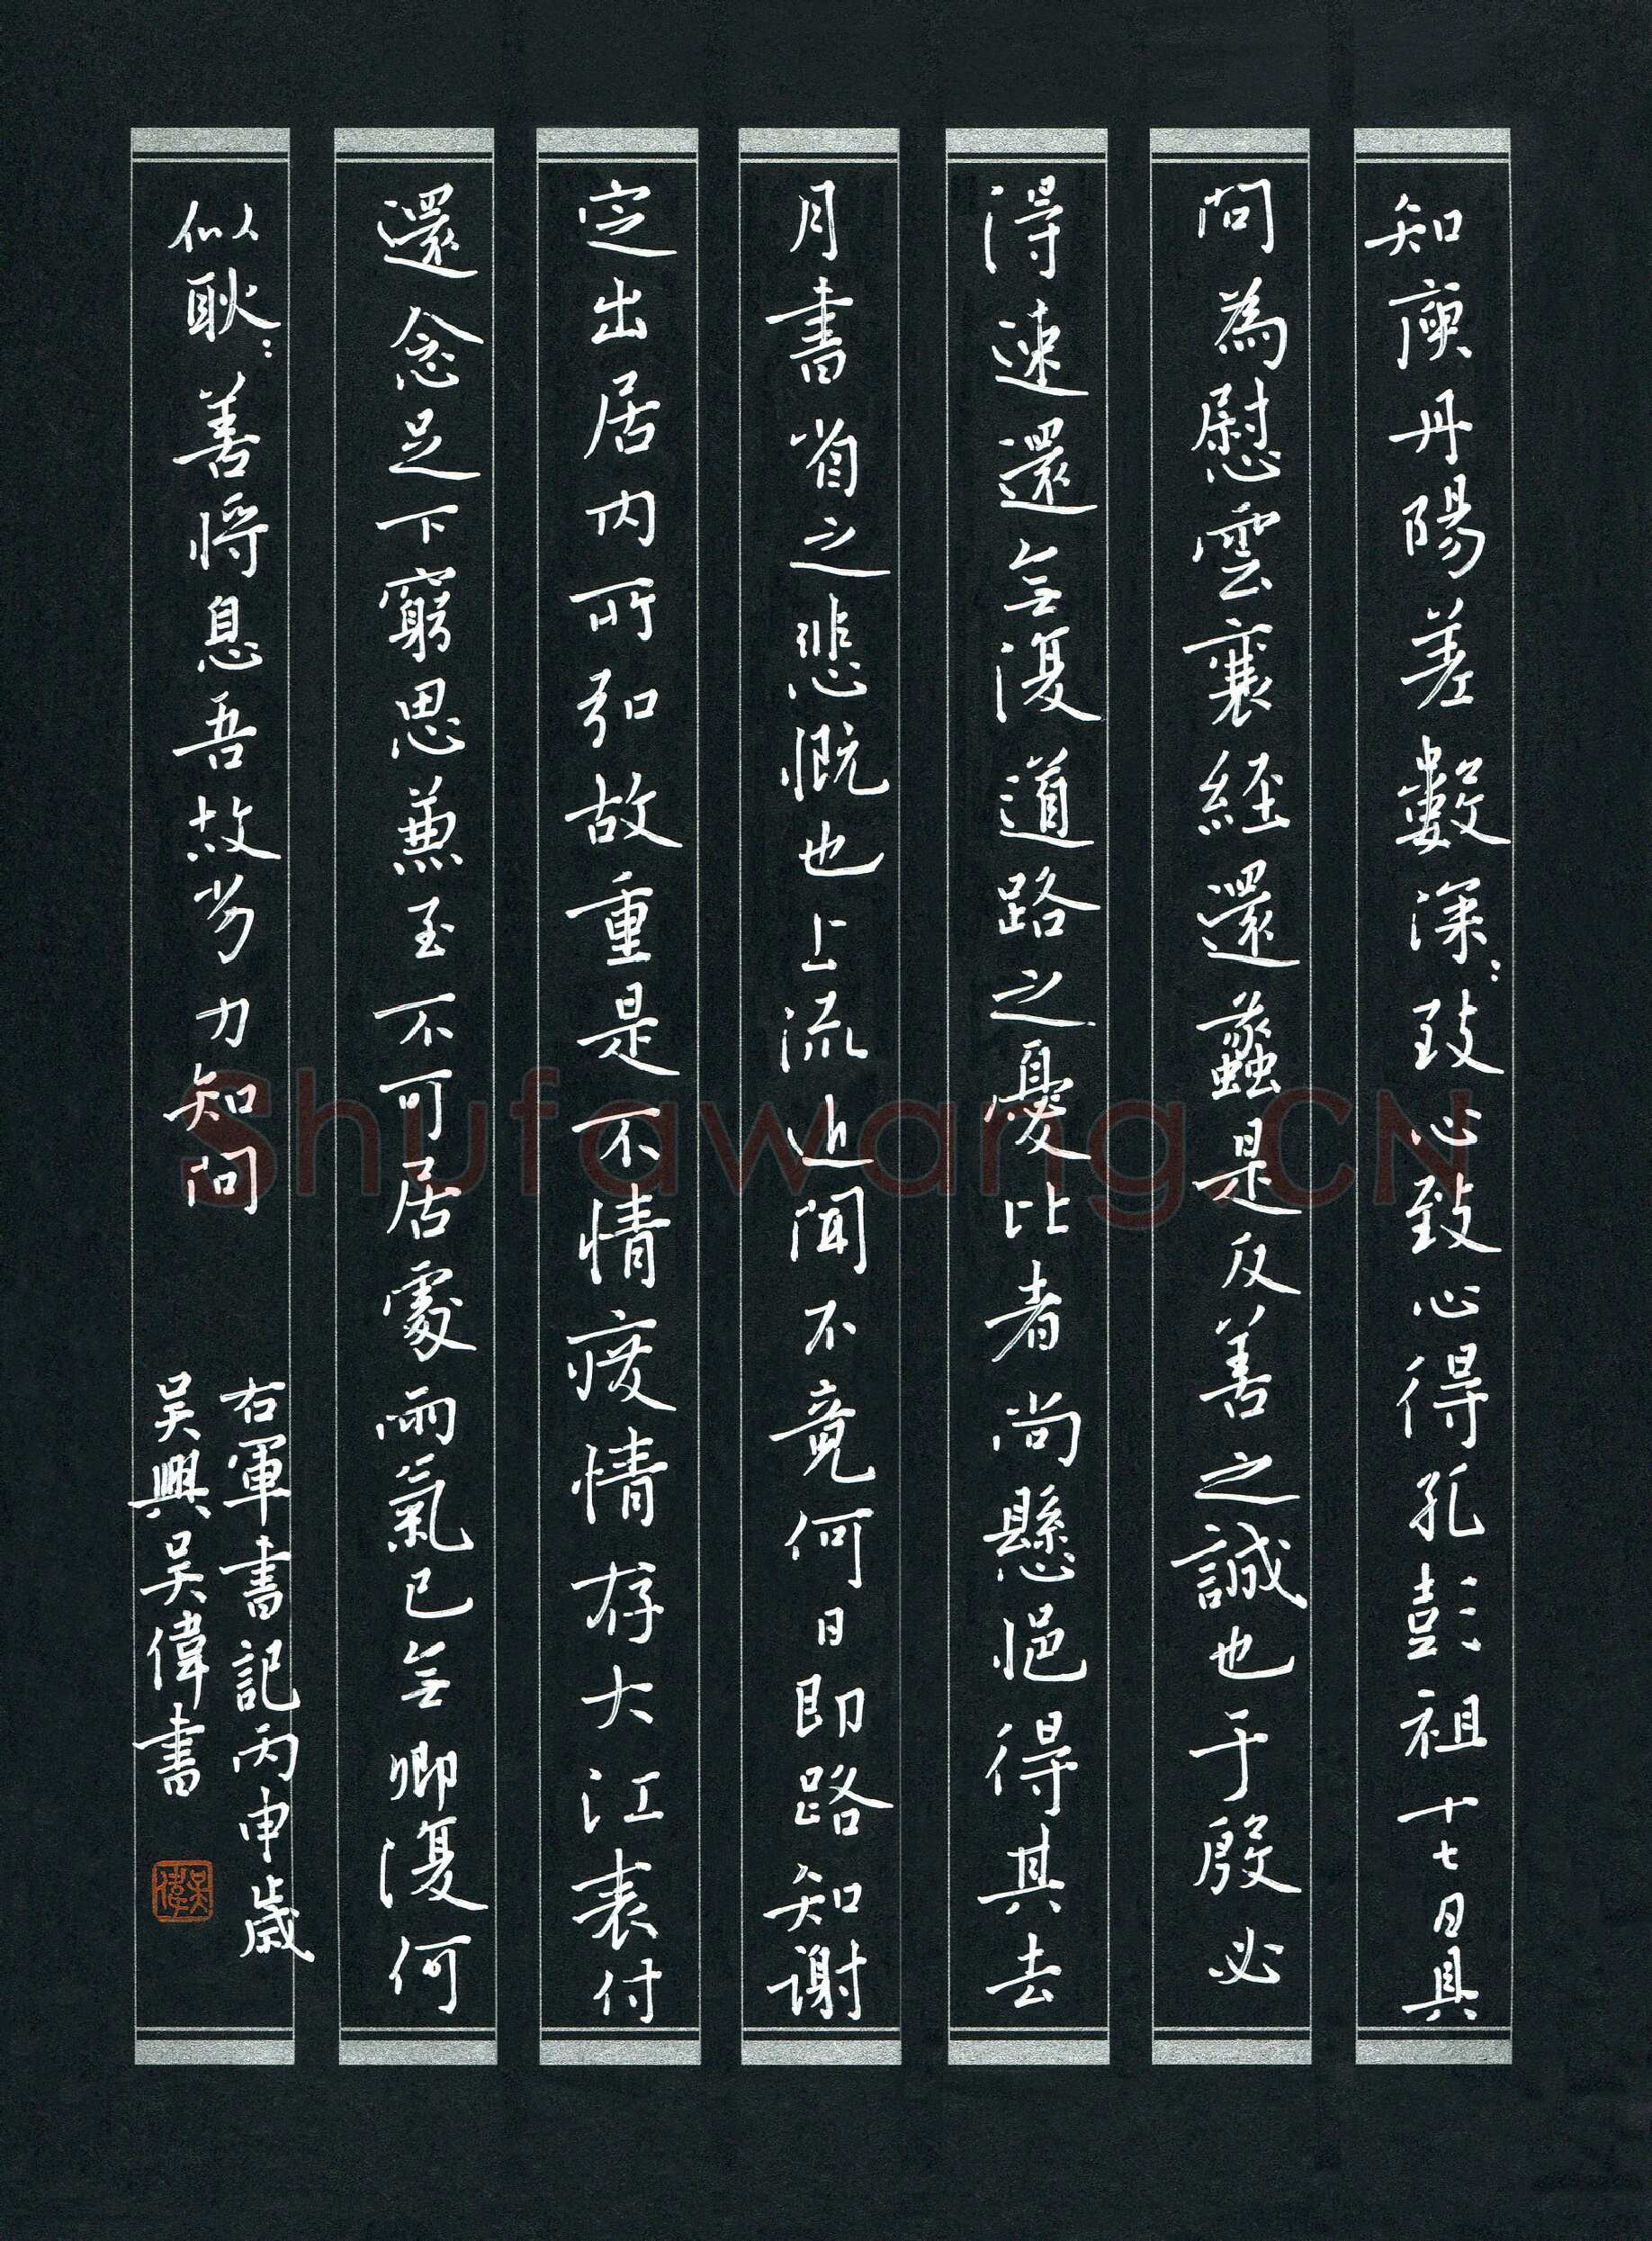 知庾丹陽差數深〻致心致心得孔彭祖十七日具
問為慰雲襄經還蠡是反善之誠也于殷必
得速還無復道路之憂比者尚懸悒得其去
月書省之悲慨也上流近聞不竟何日即路知謝
定出居內所弘故重是不情疲情存大江表付
還念足下窮思兼至不可居處雨氣已無卿復何
似耿〻善將息吾故劣力知問
右軍書記丙申歲
吳興吳偉書
吳偉
Shufawang.CN